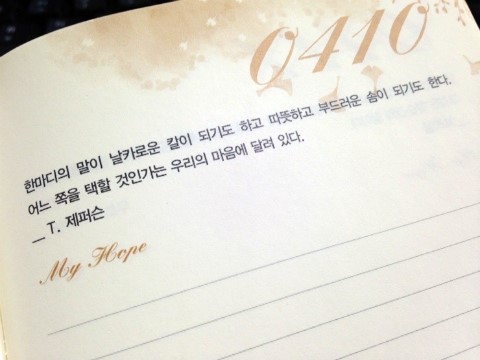 0410
한마디의 말이 날카로운 칼이 되기도 하고 따뜻하고 부드러운 솜이 되기도 한다.
어느 쪽을 택할 것인가는 우리의 마음에 달려 있다.
_ T. 제퍼슨
My Hope